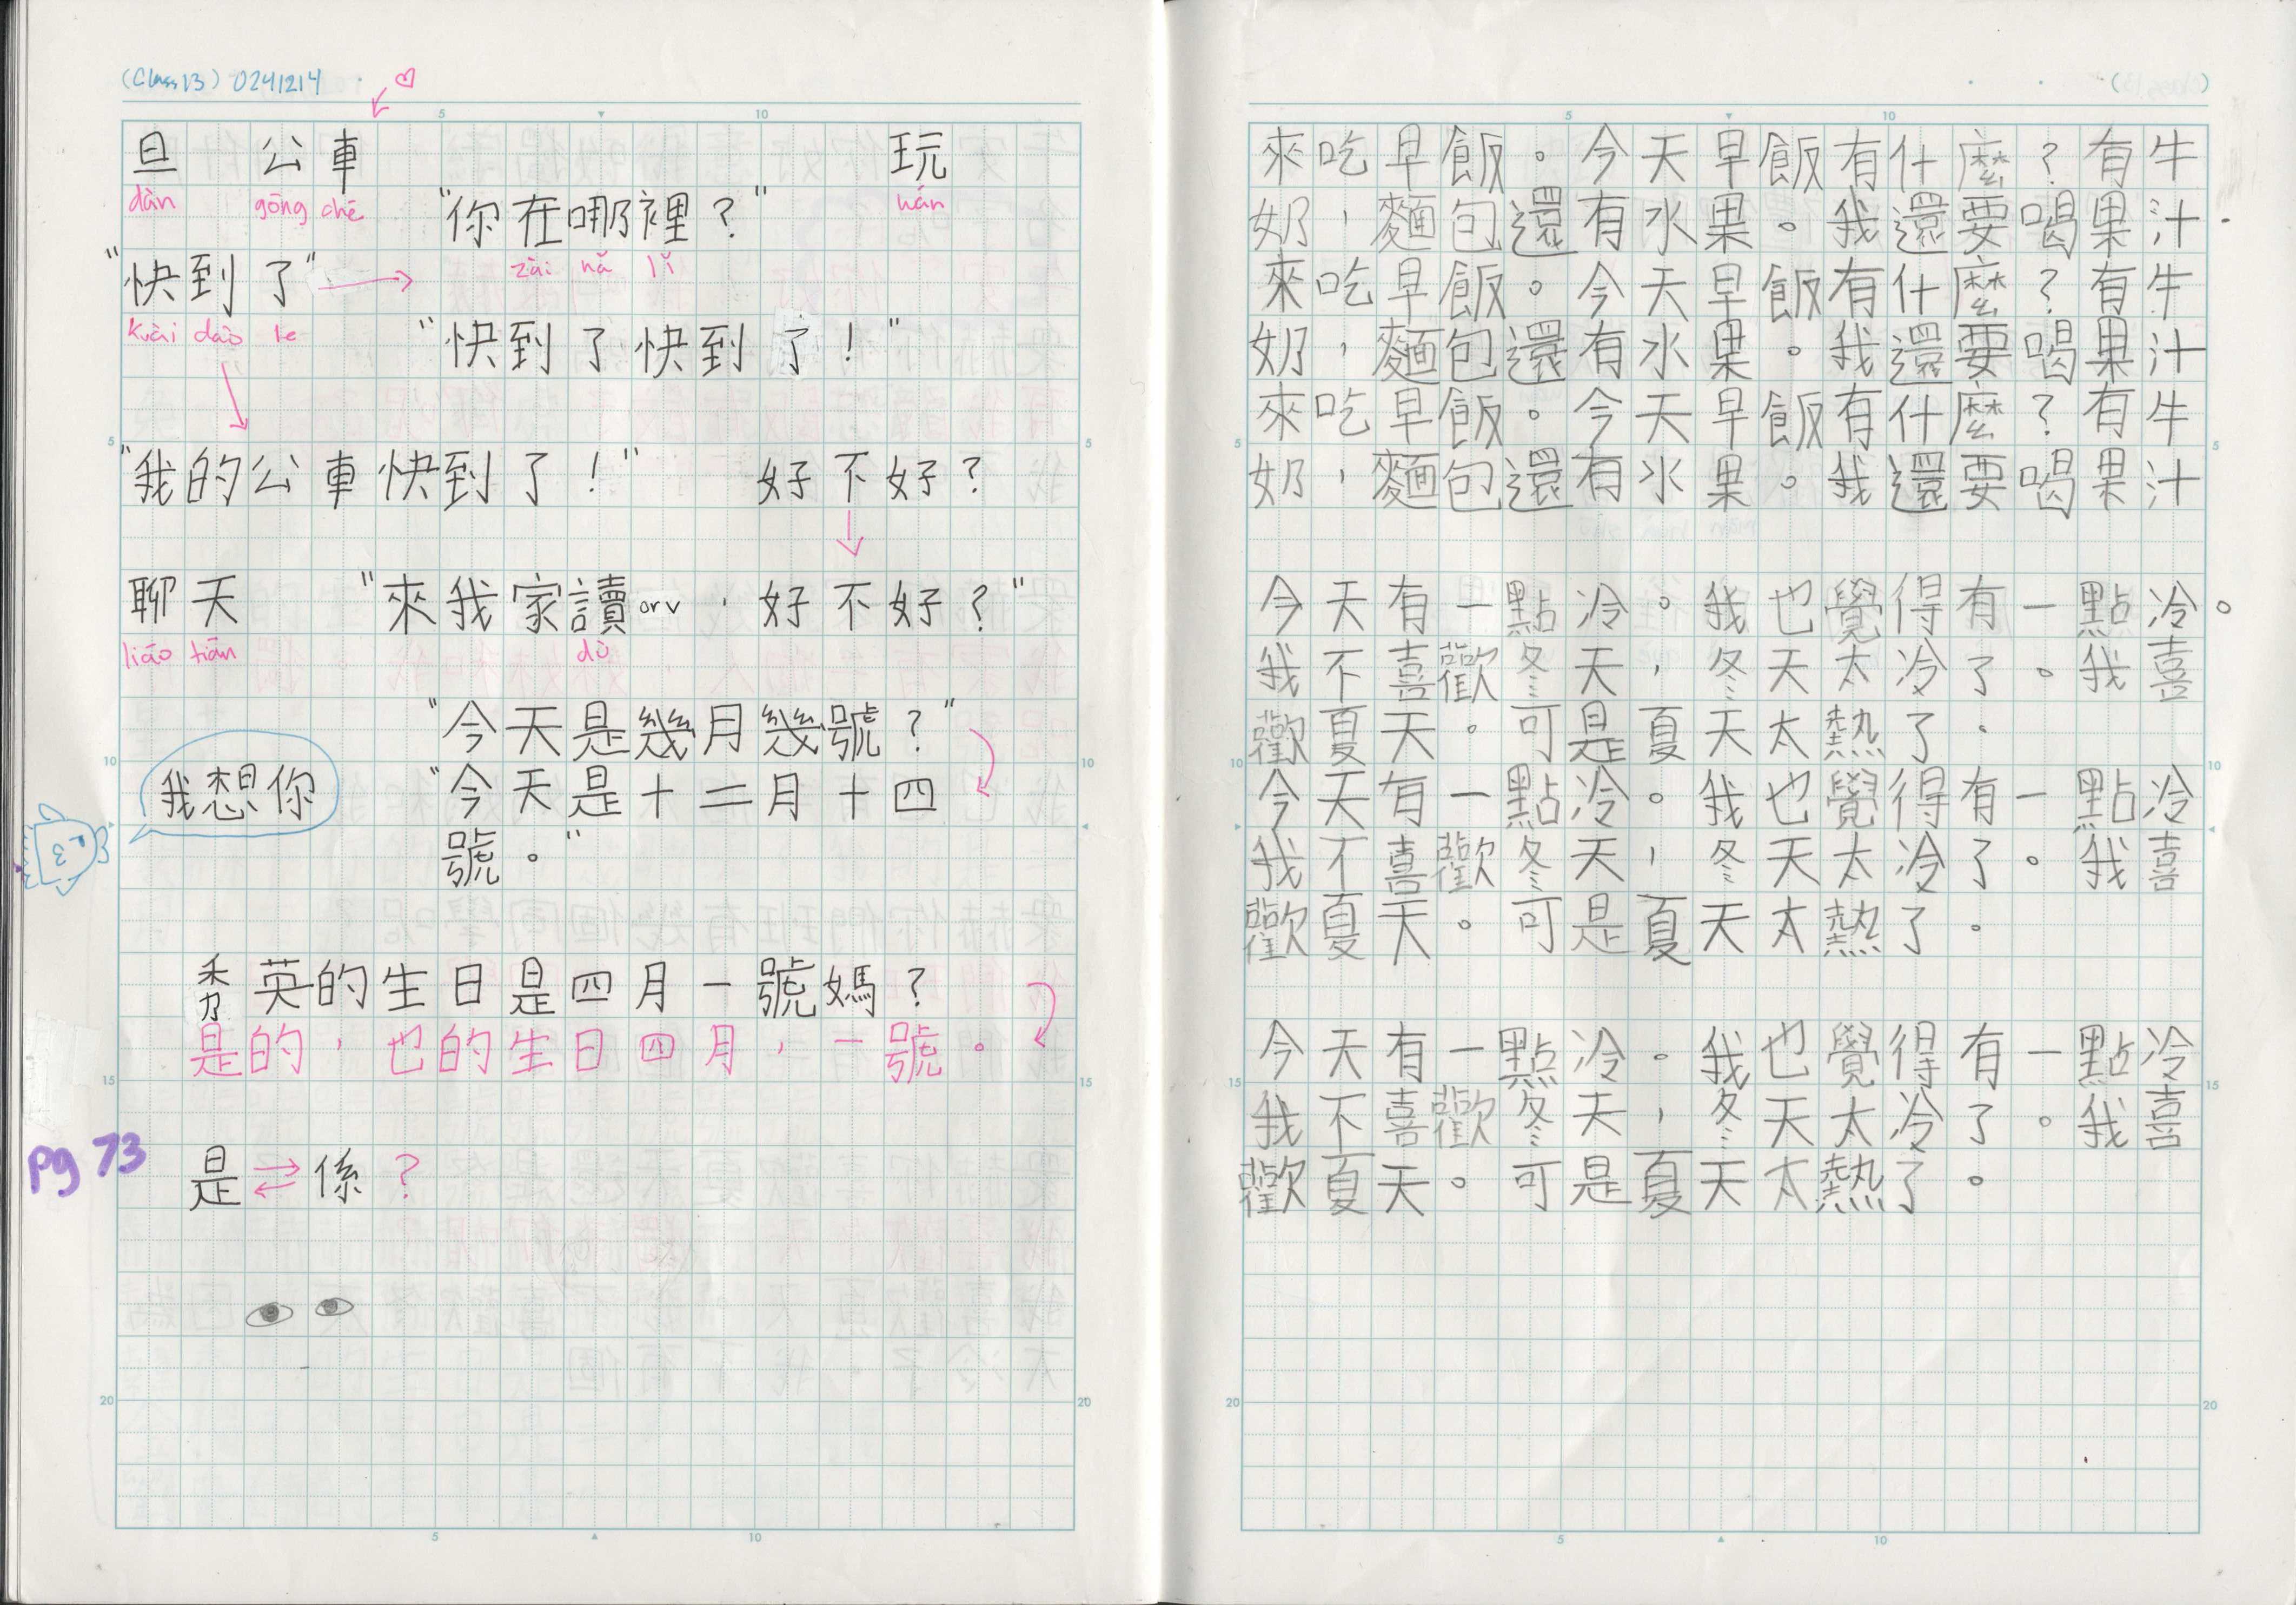 (Class 13) 0241214
旦 公車 玩
dàn gōng chē wán
"你在哪裡？"
zài nǎ lǐ
"快到了"
kuài dào le
"快到了快到了！"
"我的公車快到了！" 好不好？
聊天 "來我家讀orv，好不好？"
liáo tiān dú
"今天是幾月幾號？"
我想你
"今天是十二月十四
號。"
秀英的生日是四月一號媽？
是的，也的生日四月，一號。
pg 73
是 ⇄ 係？
5 10
5 10 15 20
來吃早飯。今天早飯有什麼？有牛
奶，麵包還有水果。我還要喝果汁
來吃早飯。今天早飯有什麼？有牛
奶，麵包還有水果。我還要喝果汁
來吃早飯。今天早飯有什麼？有牛
奶，麵包還有水果。我還要喝果汁
今天有一點冷。我也覺得有一點冷。
我不喜歡冬天，冬天太冷了。我喜
歡夏天。可是夏天太熱了.
今天有一點冷。我也覺得有一點冷
我不喜歡冬天，冬天太冷了。我喜
歡夏天。可是夏天太熱了。
今天有一點冷。我也覺得有一點冷
我不喜歡冬天，冬天太冷了。我喜
歡夏天。可是夏天太熱了。
5 10
5 10 15 20